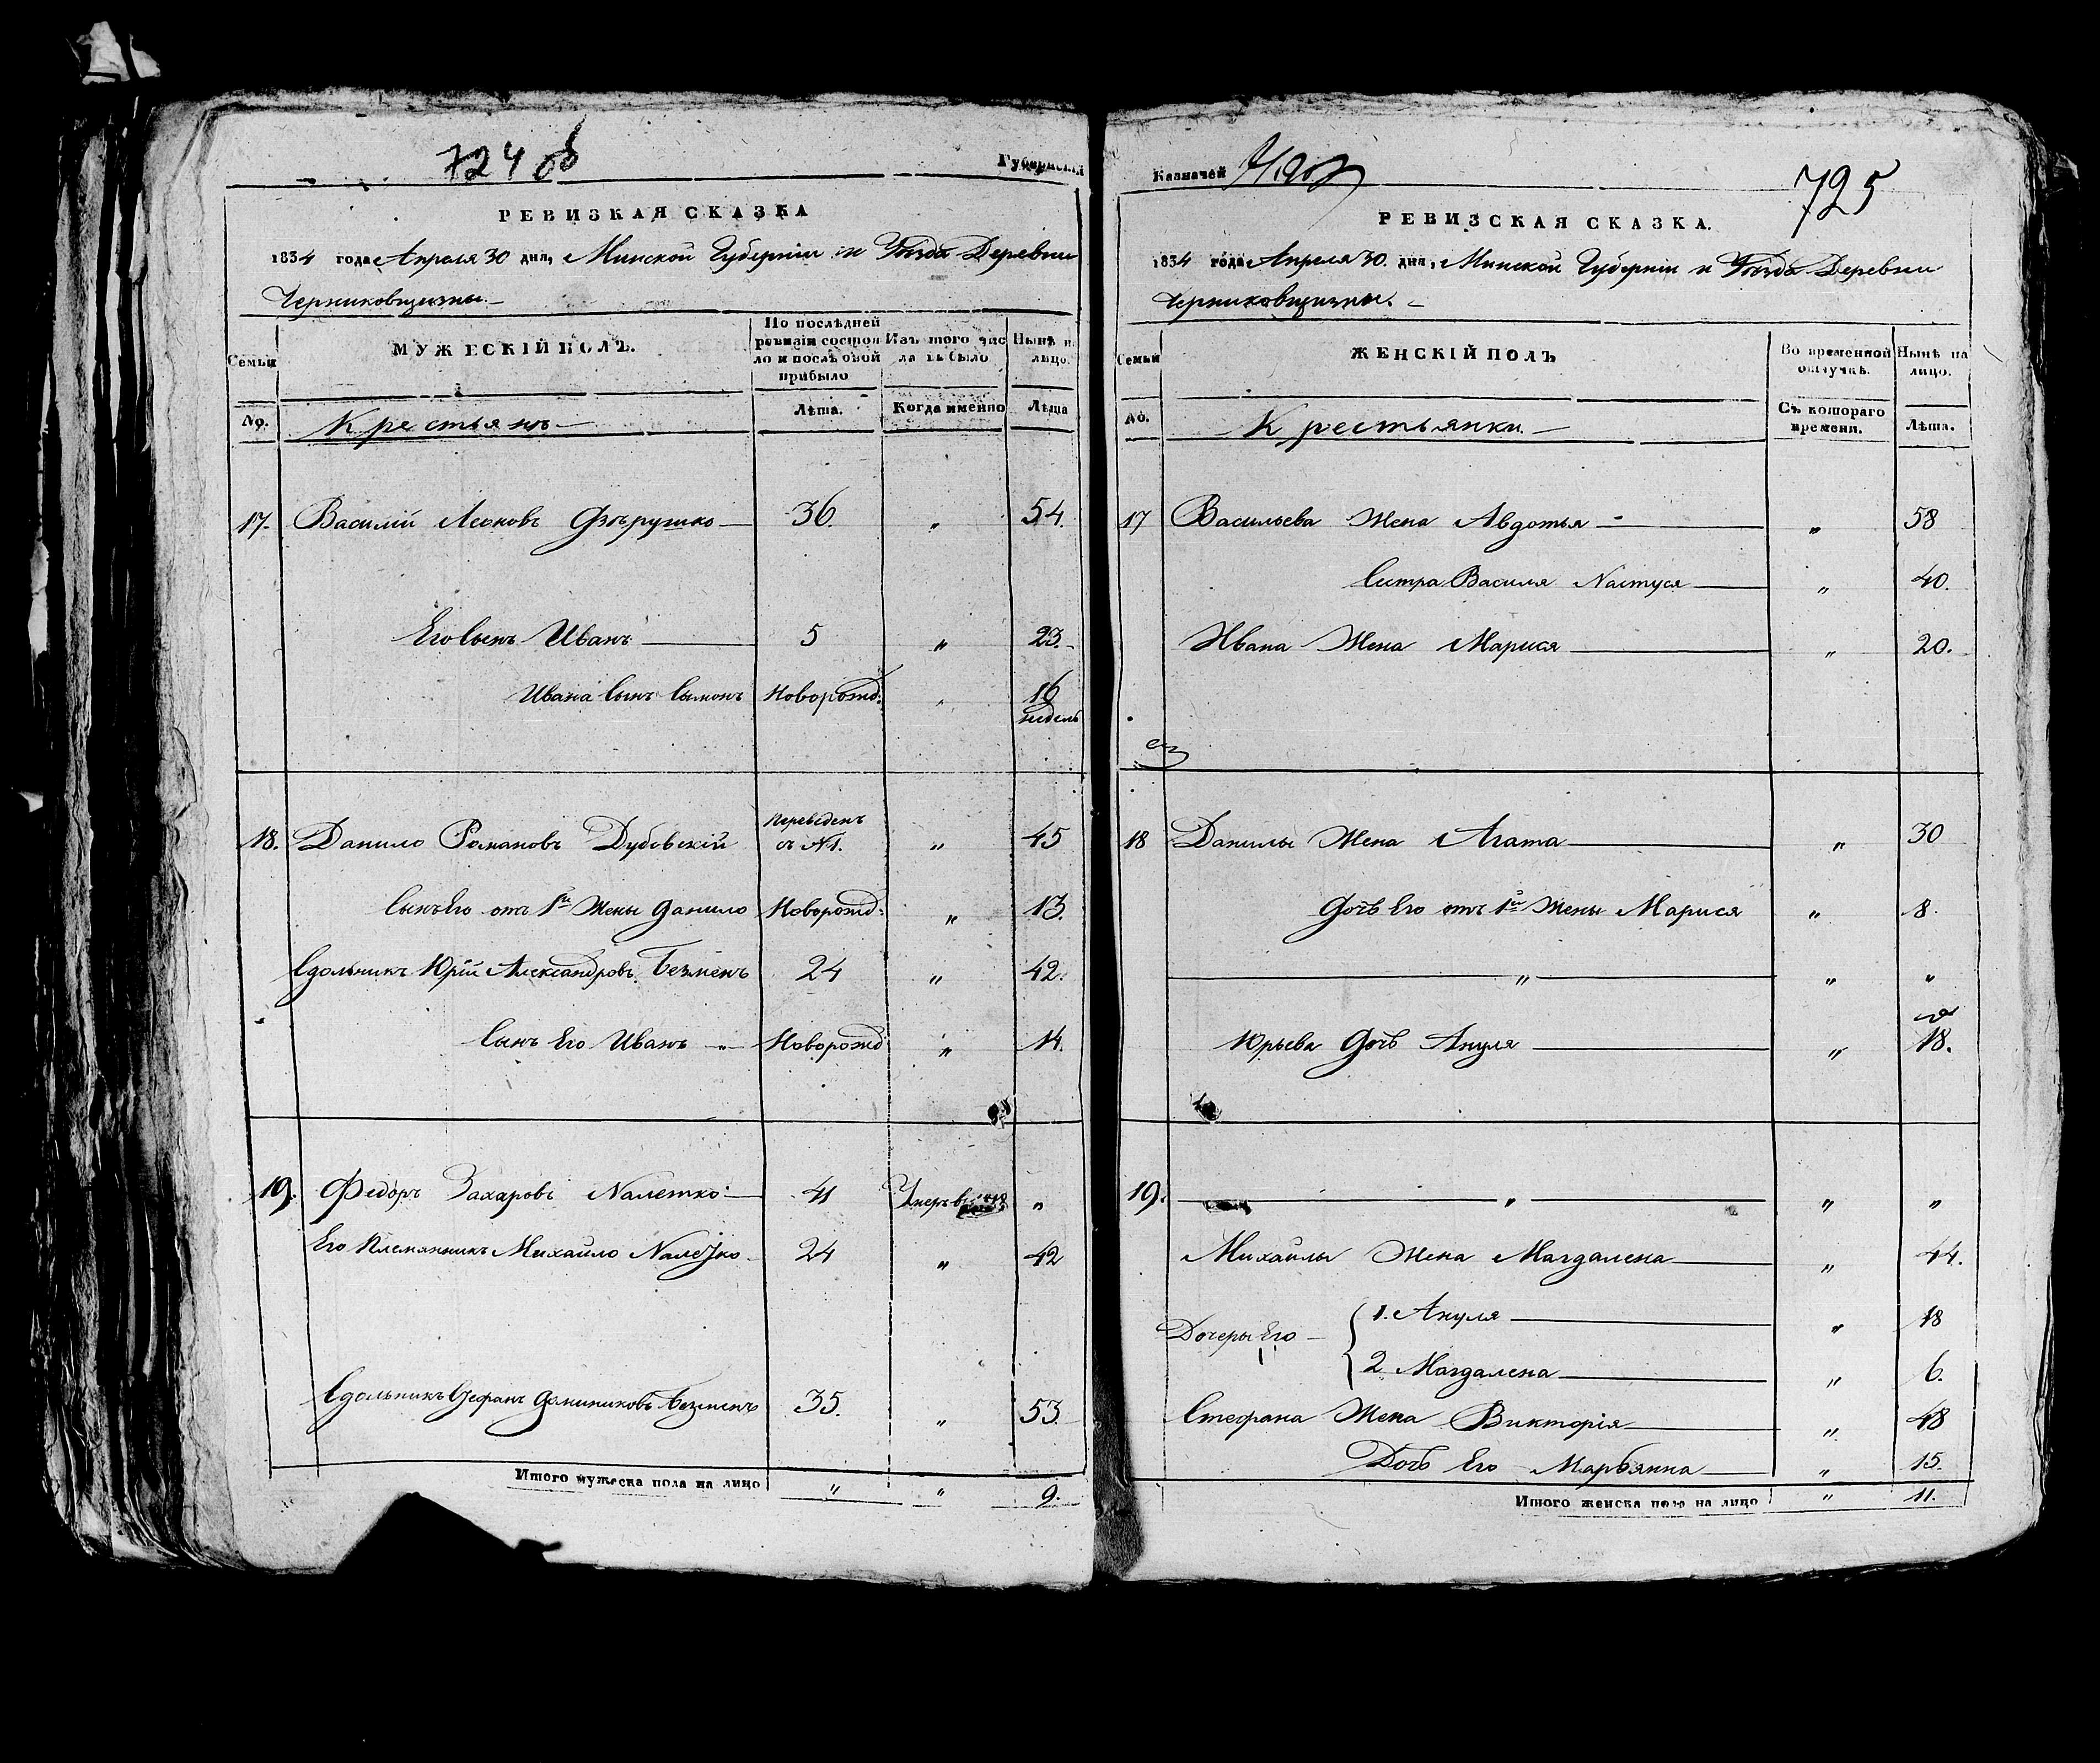 724 об
Губернскій
РЕВИЗКАЯ СКАЗКА
1834 года Апреля 30 дня, Минской Губерніи и Уѣзда Деревни
Черниковщизны.
Семьи
МУЖЕСКІЙ ПОЛЪ.
По послѣдней ревизіи состояло и послѣ оной прибыло
Изъ того числа выбыло
Нынѣ на лицо.
No.
Крестьянъ
Лѣта.
Когда именно
Лѣта
17. Василій Леоновъ 36. " 54.
Его Сынъ Иванъ 5 " 23.
Ивана Сынъ Сымонъ Новорожд: " 16 недель
18. Данило Романовъ Дубовскій переведенъ съ №1. " 45
Сынъ Его отъ 1й Жены Данило Новорожд: " 13.
Сдольникъ Юрій Александровъ Безменъ 24 " 42.
Сынъ Его Иванъ " Новорожд " 14.
19. Федоръ Захаровъ Налетко 41 Умеръ в "
Его Племянникъ Михайло Налетко 24 " 42
Сдольникъ Стефанъ Доминиковъ Безменъ 35. " 53.
Итого мужеска пола на лицо " " 9.
Казначей
725
РЕВИЗСКАЯ СКАЗКА.
1834 года Апреля 30. дня, Минской Губерніи и Уѣзда Деревни
Черниковщизны.
Семьи
ЖЕНСКІЙ ПОЛЪ
Во временной отлучкѣ.
Нынѣ на лицо.
No.
Крестьянки.
Съ котораго времени.
Лѣта.
17 Васильева Жена Авдотья " 58
Систра Василя Настуся " 40.
Ивана Жена Марися " 20.
18 Данилы Жена Агата " 30
Дочь Его отъ 1й Жены Марися " 8.
" " "
Юрьева Дочь Ануля " 18.
19. " " "
Михайлы Жена Магдалена " 44.
Дочеры Его
1. Ануля " 18
2. Магдалена " 6.
Стефана Жена Викторія " 48
Дочь Его Марьянна " 15.
Итого женска пола на лицо " 11.